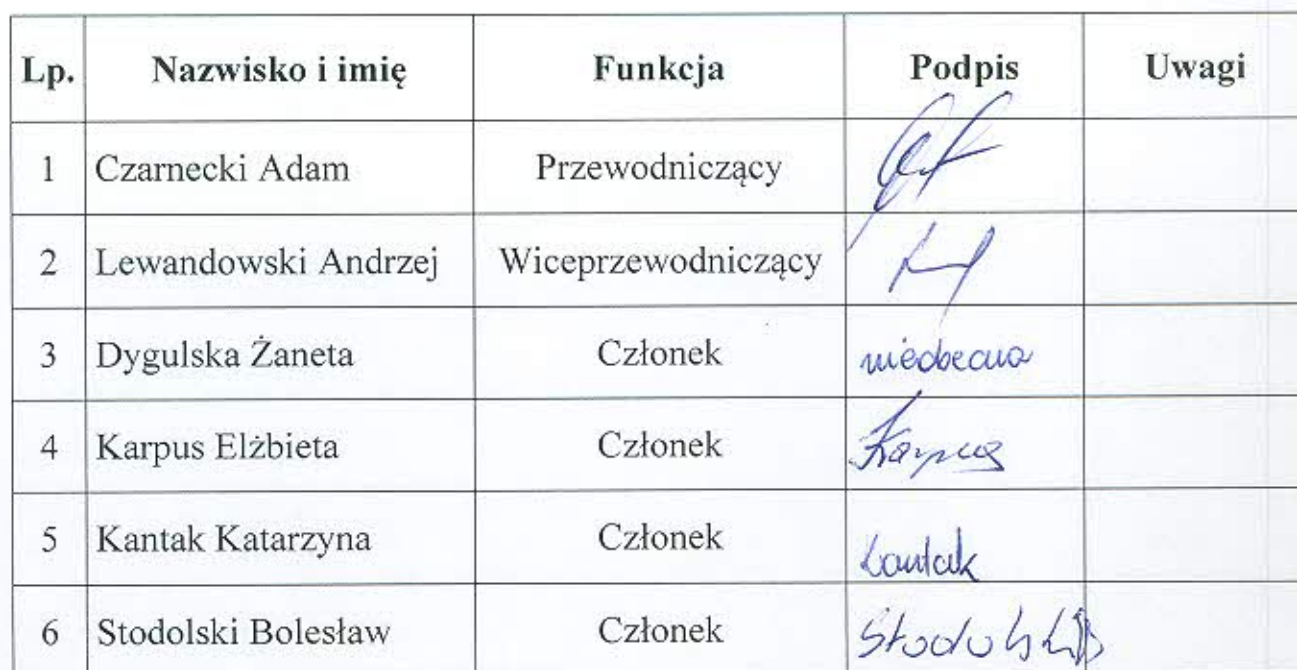 Lp. Nazwisko i imię Funkcja Podpis Uwagi
1 Czarnecki Adam Przewodniczący
2 Lewandowski Andrzej Wiceprzewodniczący
3 Dygulska Żaneta Członek nieobecna
4 Karpus Elżbieta Członek Karpus
5 Kantak Katarzyna Członek Kantak
6 Stodolski Bolesław Członek Stodolski B